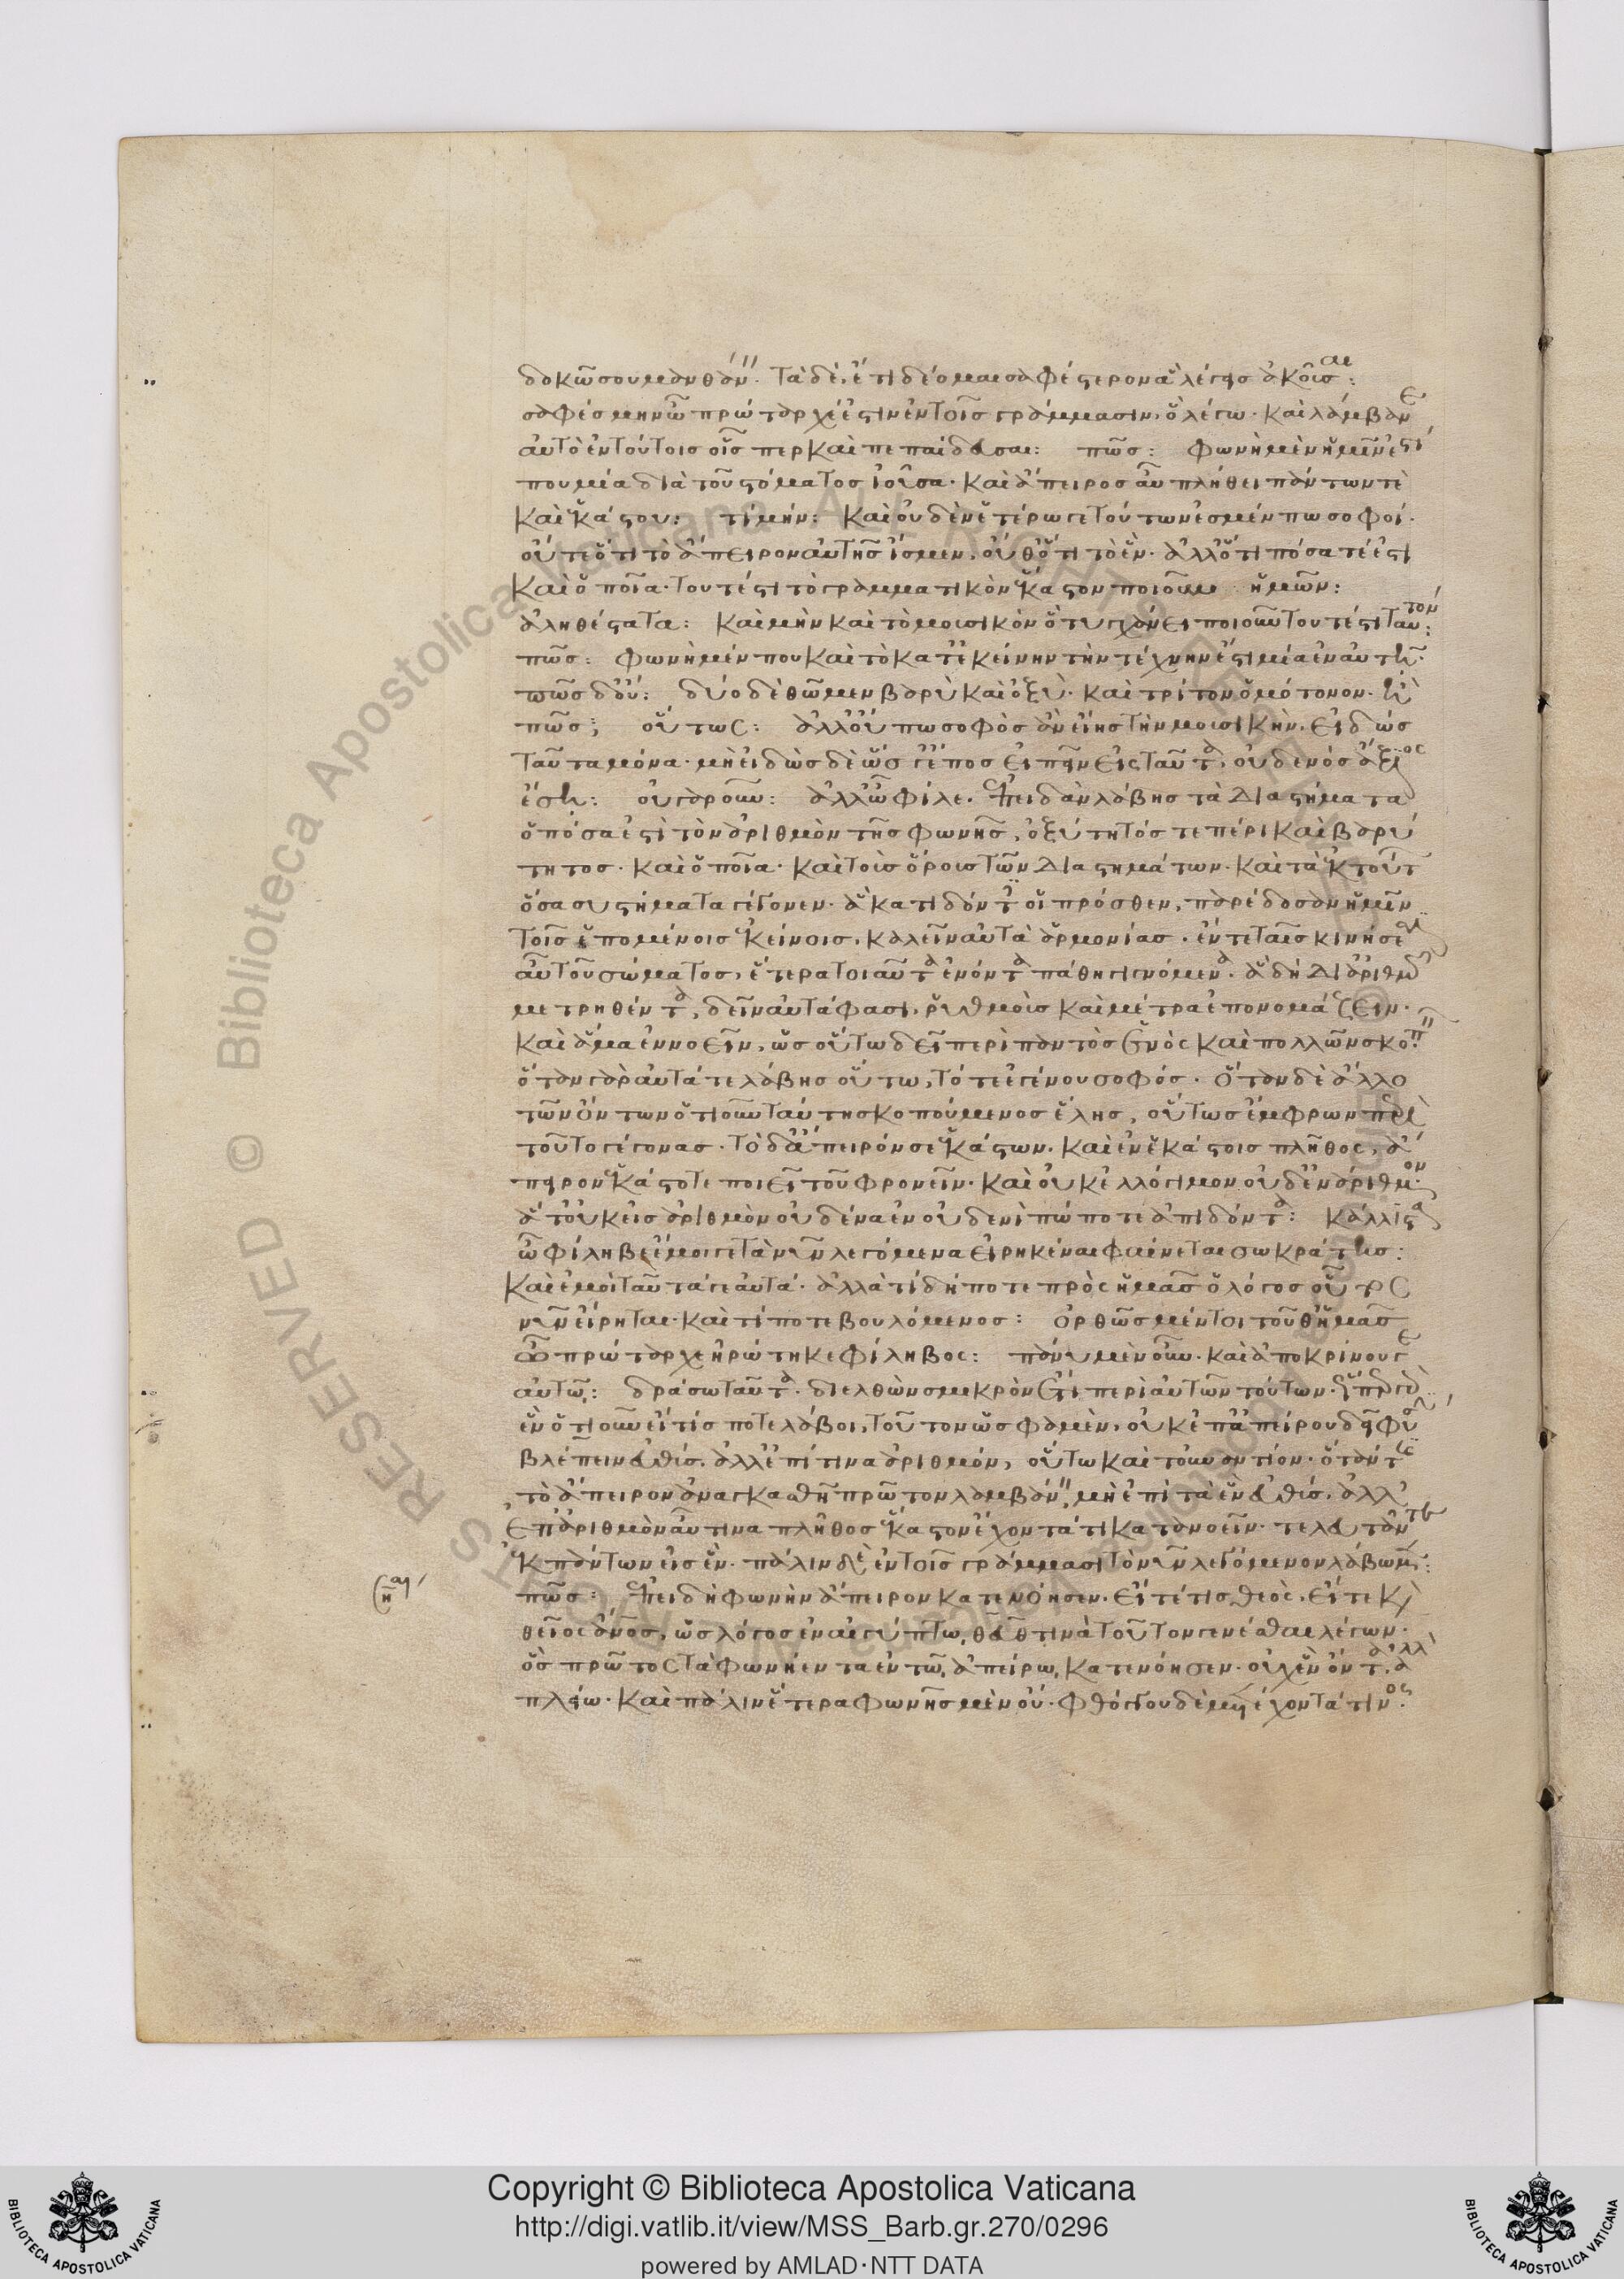 δοκῶ σου μανθάν· τὰ δὲ, ἔτι δέομαι σαφέστερον ἃ λέγεις ἀκοῦσαι:
σαφὲς μὴν ὦ πρώταρχέ ἐστιν ἐν τοῖς γράμμασιν, ὃ λέγω· καὶ λάμβανε
αὐτὸ ἐν τούτοις οἷσπερ καὶ πεπαίδευσαι: πῶς: φωνὴ μὲν ἡμῖν ἐστί
που μία διὰ τοῦ στόματος ἰοῦσα· καὶ ἄπειρος αὖ πλήθει πάντων τὲ
καὶ ἑκάστου: τί μήν: καὶ οὐδὲν ἑτέρω γε τούτων ἐσμέν πω σοφοί·
οὔτε ὅτι τὸ ἄπειρον αὐτῆς ἴσμεν, οὔθ' ὅτι τὸ ἕν· ἀλλ' ὅτι πόσα τέ ἐστι
καὶ ὁποῖα· τουτέστι τὸ γραμματικὸν ἕκαστον ποιοῦν ἡμῶν:
ἀληθέστατα: καὶ μὴν καὶ τὸ μουσικὸν ὃ τυγχάνει ποιοῦν τουτέστι ταυτόν:
πῶς: φωνὴ μέν που καὶ τὸ κατ' ἐκείνην τὴν τέχνην ἐστὶ μία ἐν αὐτῆ·
πῶς δ' οὔ: δύο δὲ θῶμεν βαρὺ καὶ ὀξὺ· καὶ τρίτον ὁμότονον· ἢ
πῶς; οὕτως: ἀλλ' οὔπω σοφὸς ἂν εἴης τὴν μουσικὴν, εἰδὼς
ταῦτα μόνα· μὴ εἰδὼς δὲ ὥς γ' ἔπος εἰπεῖν εἰς ταῦτα, οὐδενὸς ἄξιος
ἔση: οὐ γὰρ οὖν: ἀλλ' ὦ φίλε· ἐπειδὰν λάβης τὰ διαστήματα
ὁπόσα ἐστὶ τὸν ἀριθμὸν τῆς φωνῆς, ὀξύτητός τε πέρι καὶ βαρύ
τητος· καὶ ὁποῖα· καὶ τοὺς ὅρους τῶν διαστημάτων· καὶ τὰ ἐκ τούτ
ὅσα συστήματα γέγονεν· ἃ κατιδόντες οἱ πρόσθεν, παρέδοσαν ἡμῖν
τοῖς ἑπομένοις ἐκείνοις, καλεῖν αὐτὰ ἁρμονίας· ἔν τε ταῖς κινήσεσιν
αὖ τοῦ σώματος, ἕτερα τοιαῦτα ἐνόντα πάθη γιγνόμενα· ἃ δὴ δι' ἀριθμῶν
μετρηθέντα, δεῖν αὐτά φασι, ῥυθμοὺς καὶ μέτρα ἐπονομάζειν·
καὶ ἅμα ἐννοεῖν, ὡς οὕτω δεῖ περὶ παντὸς ἑνὸς καὶ πολλῶν σκοπ
ὅταν γὰρ αὐτά τε λάβης οὕτω, τότε ἐγένου σοφός· ὅταν δὲ ἄλλο
τῶν ὄντων ὁτιοῦν ταύτη σκοπούμενος ἕλης, οὕτως ἔμφρων περὶ
τοῦτο γέγονας· τὸ δ' ἄπειρόν σε ἑκάστων· καὶ ἐν ἑκάστοις πλῆθος, ἄ
πειρον ἑκάστοτε ποιεῖ τοῦ φρονεῖν· καὶ οὐκ ἐλλόγιμον οὐδ' ἐνάριθμον·
ἅτ' οὐκ εἰς ἀριθμὸν οὐδένα ἐν οὐδενὶ πώποτε ἀπιδόντα: κάλλιστα
ὦ φίληβε ἔμοιγε τὰ νῦν λεγόμενα εἰρηκέναι φαίνεται σωκράτης:
καὶ ἐμοὶ ταῦτά γε αὐτά· ἀλλὰ τί δή ποτε πρὸς ἡμᾶς ὁ λόγος οὗτος
νῦν εἴρηται· καὶ τί ποτε βουλόμενος: ὀρθῶς μέντοι τοῦθ' ἡμᾶς
ὦ πρώταρχε ἠρώτηκε φίληβος: πάνυ μὲν οὖν· καὶ ἀποκρίνου γε
αὐτῶ: δράσω ταῦτα· διελθὼν σμικρὸν ἔτι περὶ αὐτῶν τούτων· ὥσπερ γὰρ
ἓν ὁτιοῦν εἴ τίς ποτε λάβοι, τοῦτον ὥς φαμὲν, οὐκ ἐπ' ἀπείρου δεῖ φύσιν
βλέπειν εὐθὺς, ἀλλ' ἐπί τινα ἀριθμόν, οὕτω καὶ τοὐναντίον· ὅταν τις
τὸ ἄπειρον ἀναγκασθῆ πρῶτον λαμβάν, μὴ ἐπὶ τὰ ἓν εὐθύς, ἀλλ'
ἐπ' ἀριθμὸν αὖ τινα πλῆθος ἕκαστον ἔχοντά τι κατανοεῖν· τελευτᾶν τε
ἐκ πάντων εἰς ἕν· πάλιν δὲ ἐν τοῖς γράμμασι τὸ νῦν λεγόμενον λάβωμεν:
πῶς: ἐπειδὴ φωνὴν ἄπειρον κατενόησεν, εἴτε τὶς θεὸς, εἴτε κ
θεῖος ἄνος, ὡς λόγος ἐν αἰγύπτω, θεῦθ τινὰ τοῦτον γενέσθαι λέγων·
ὃς πρῶτος τὰ φωνήεντα ἐν τῶ ἀπείρω, κατενόησεν· οὐχ ἓν ὄντα, ἀλλὰ
πλείω· καὶ πάλιν ἕτερα φωνῆς μὲν οὔ· φθόγγου δὲ μετέχοντά τινος·
Copyright © Biblioteca Apostolica Vaticana
http://digi.vatlib.it/view/MSS_Barb.gr.270/0296
powered by AMLAD·NTT DATA
BIBLIOTECA APOSTOLICA VATICANA
BIBLIOTECA APOSTOLICA VATICANA